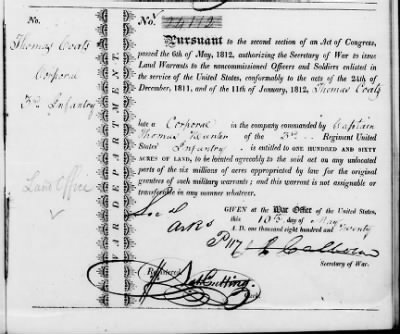 No.
Thomas Coats
Corporal
3rd Infantry
Land Office
WAR DEPARTMENT.
No. 24112
Pursuant to the second section of an Act of Congress,
passed the 6th of May, 1812, authorizing the Secretary of War to issue
Land Warrants to the noncommissioned Officers and Soldiers enlisted in
the service of the United States, conformably to the acts of the 24th of
December, 1811, and of the 11th of January, 1812, Thomas Coats
late a Corporal in the company commanded by Captain
Thomas of the 3rd Regiment United
States' Infantry is entitled to ONE HUNDRED AND SIXTY
ACRES OF LAND, to be located agreeably to the said act on any unlocated
parts of the six millions of acres appropriated by law for the original
grantees of such military warrants; and this warrant is not assignable or
transferable in any manner whatever.
GIVEN at the War Office of the United States,
this 10th day of May
A. D. one thousand eight hundred and twenty
J. C. Calhoun
Secretary of War.
Registered
Cutting
Clerk.